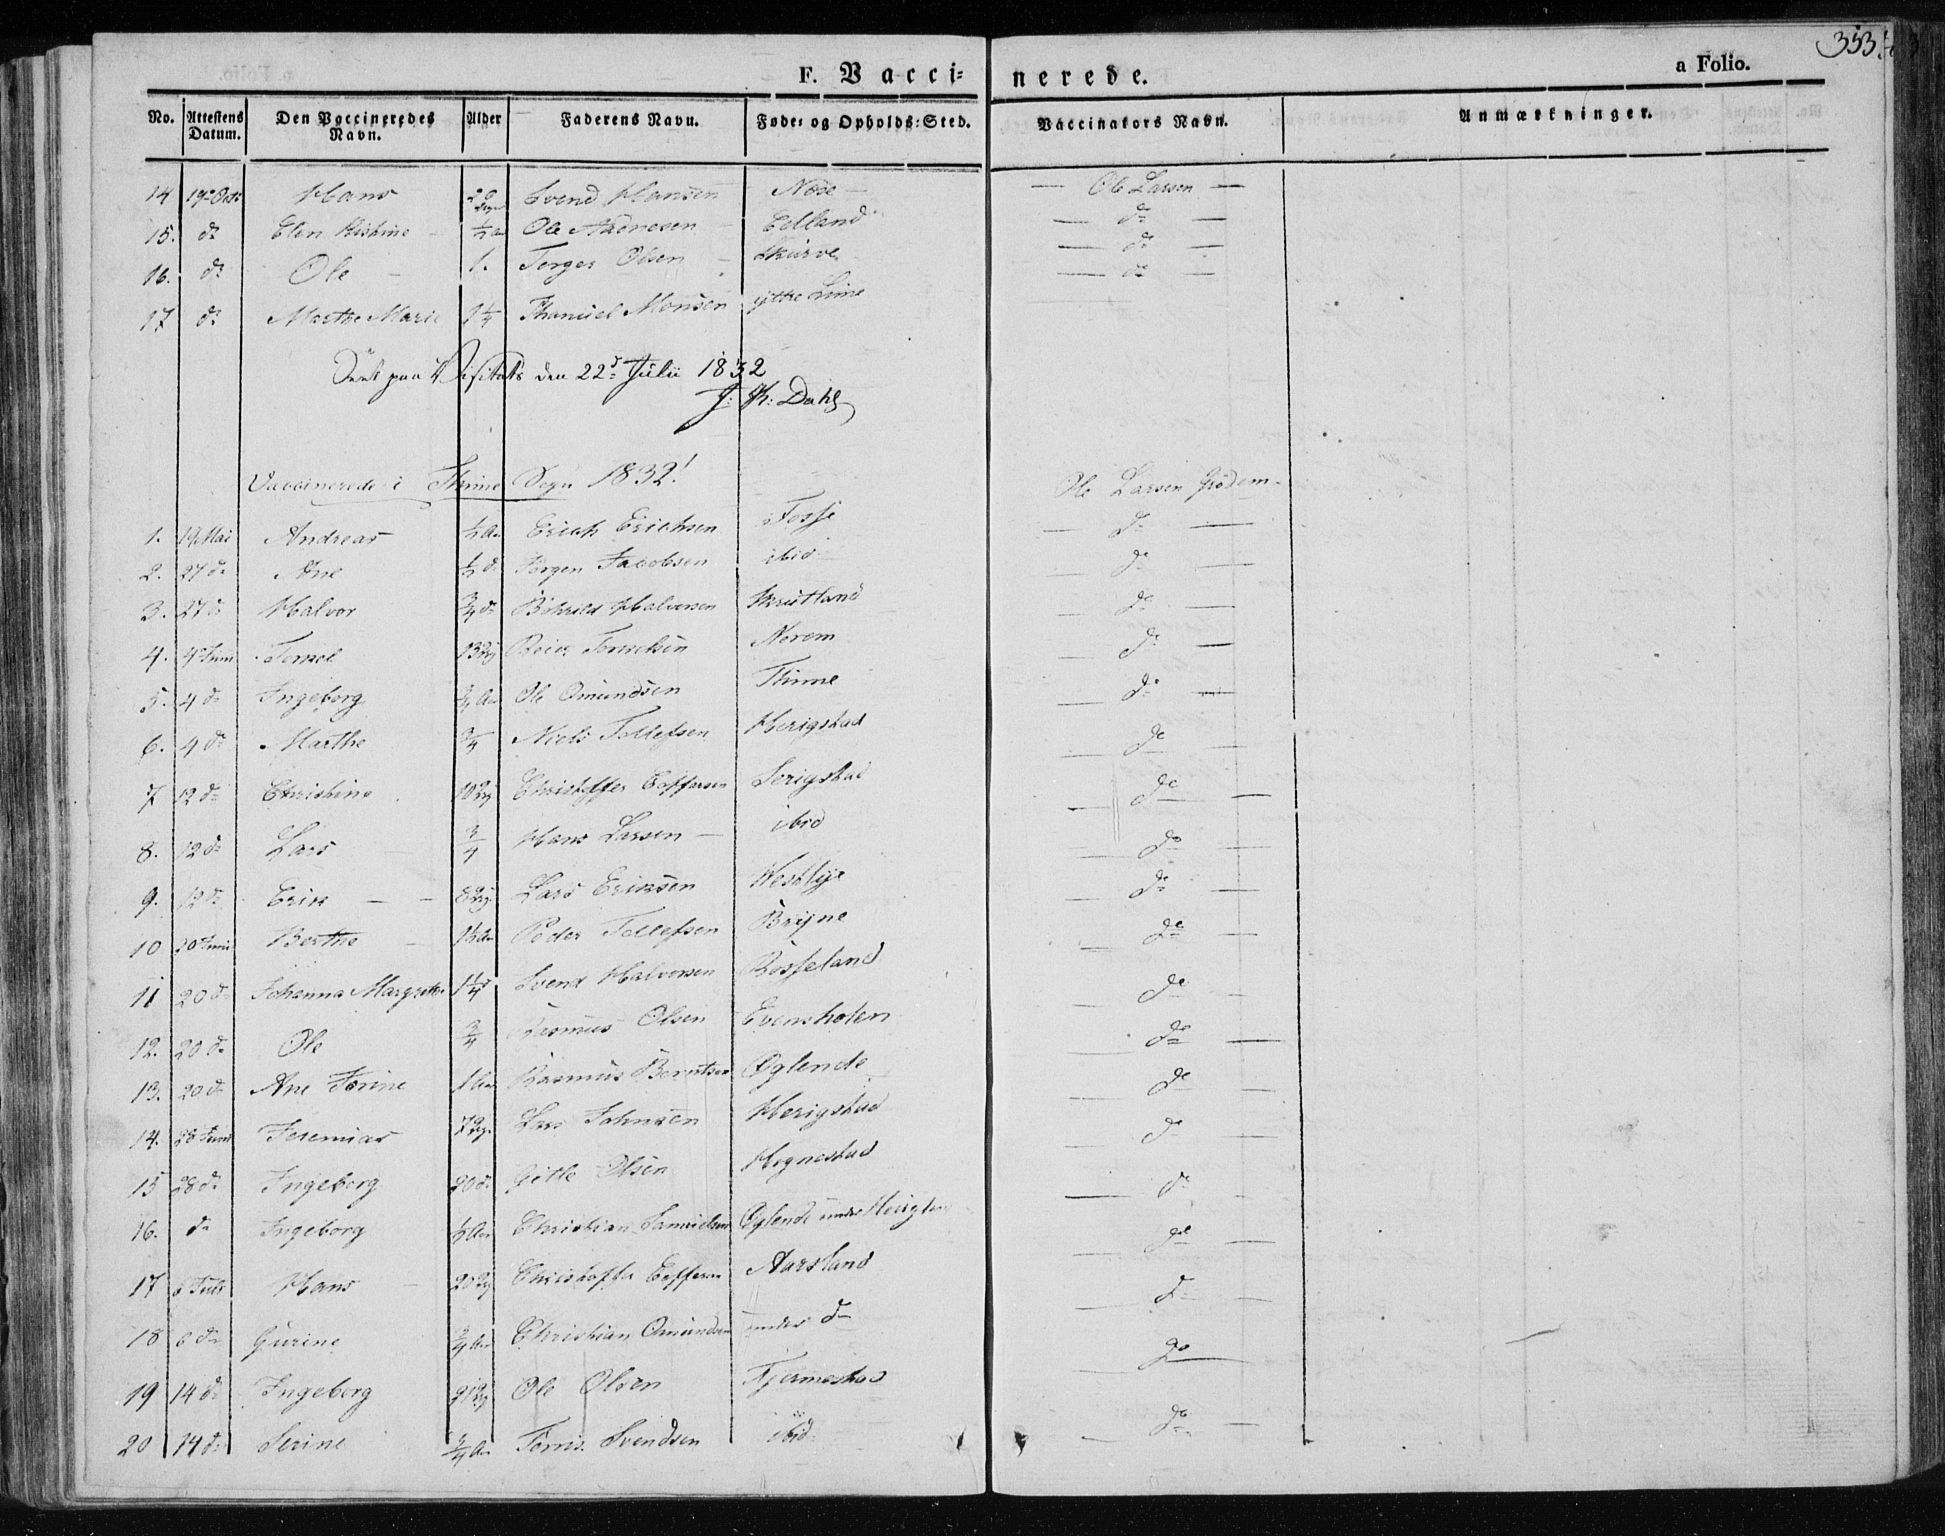 353
F. Vaccinerede.
a Folio.
No. Attestens Datum. Den Vaccineredes Navn. Alder Faderens Navn. Føde- og Opholds-Sted. Vaccinators Navn. Anmærkninger.
14 19 Octr Hans Svend Hansen Nose — Ole Larsen —
15. do Elen Kistine Ole Adenesen Eelland — do —
16. do Ole — 1. Torger Olsen — Skurve — do —
17 do Marthe Marie 1 1/4 Thamiel Monsen ytre Lime — do —
Seet paa Visitats den 22d Julii 1832
Dahl
Vaccinerede i Thime Sogn 1832!
Ole Larsen Grødem
1. 19 Mai Andreas 1/2 Aar Erich Erichsen Fosse — do —
2. 27 do Ane 1/2 do Jörgen Jacobsen ibid — do —
3. 27 do Halvor 3/4 do Halvorsen Skrutland — do —
4. 4 Juni Tonnel 13 Ug Reier Tonnelsen Norem — do —
5. 4 do Ingeborg 3/4 Aar Ole Omundsen Thime — do —
6. 4 do Marthe 3/4 Niels Tollefsen Herigstad — do —
7 12 do Christine 10 Ug Christoffer Eeffersen Serigstad — do —
8. 12 do Lars 3/4 Hans Larsen — ibid — do —
9. 12 do Erik — — Ug. Lars Eriksen Westlye — do —
10 20 Juni Berthe 1 1/2 Aar Peder Tollefsen Bryne — do —
11 20 do Johanna Margrethe 1 1/4 Svend Halvorsen Rosseland — do —
12. 20 do Ole 3/4 Rasmus Olsen Evensholen — do —
13. 20 do Ane Torine 1 Aar Rasmus Berntsen Øglende — do —
14. 28 Juni Jeremias 7 Ug. Lars Johnsen Herigstad — do —
15 28 do Ingeborg 20 do Gitle Olsen Hognestad — do —
16. do Ingeborg 1/2 Aar Christian Samuelsen Øglende under — do —
17 6 Juli Hans 20 Ug Christoffer Eeffersen Aarsland — do —
18 6 do Gurine 3/4 Aar Christian Omundsen under do — do —
19 14 do Ingeborg Ug Ole Olsen Fjermestad — do —
20 14 do Serine 3/4 Aar Tönnis Svendsen ibid. — do —